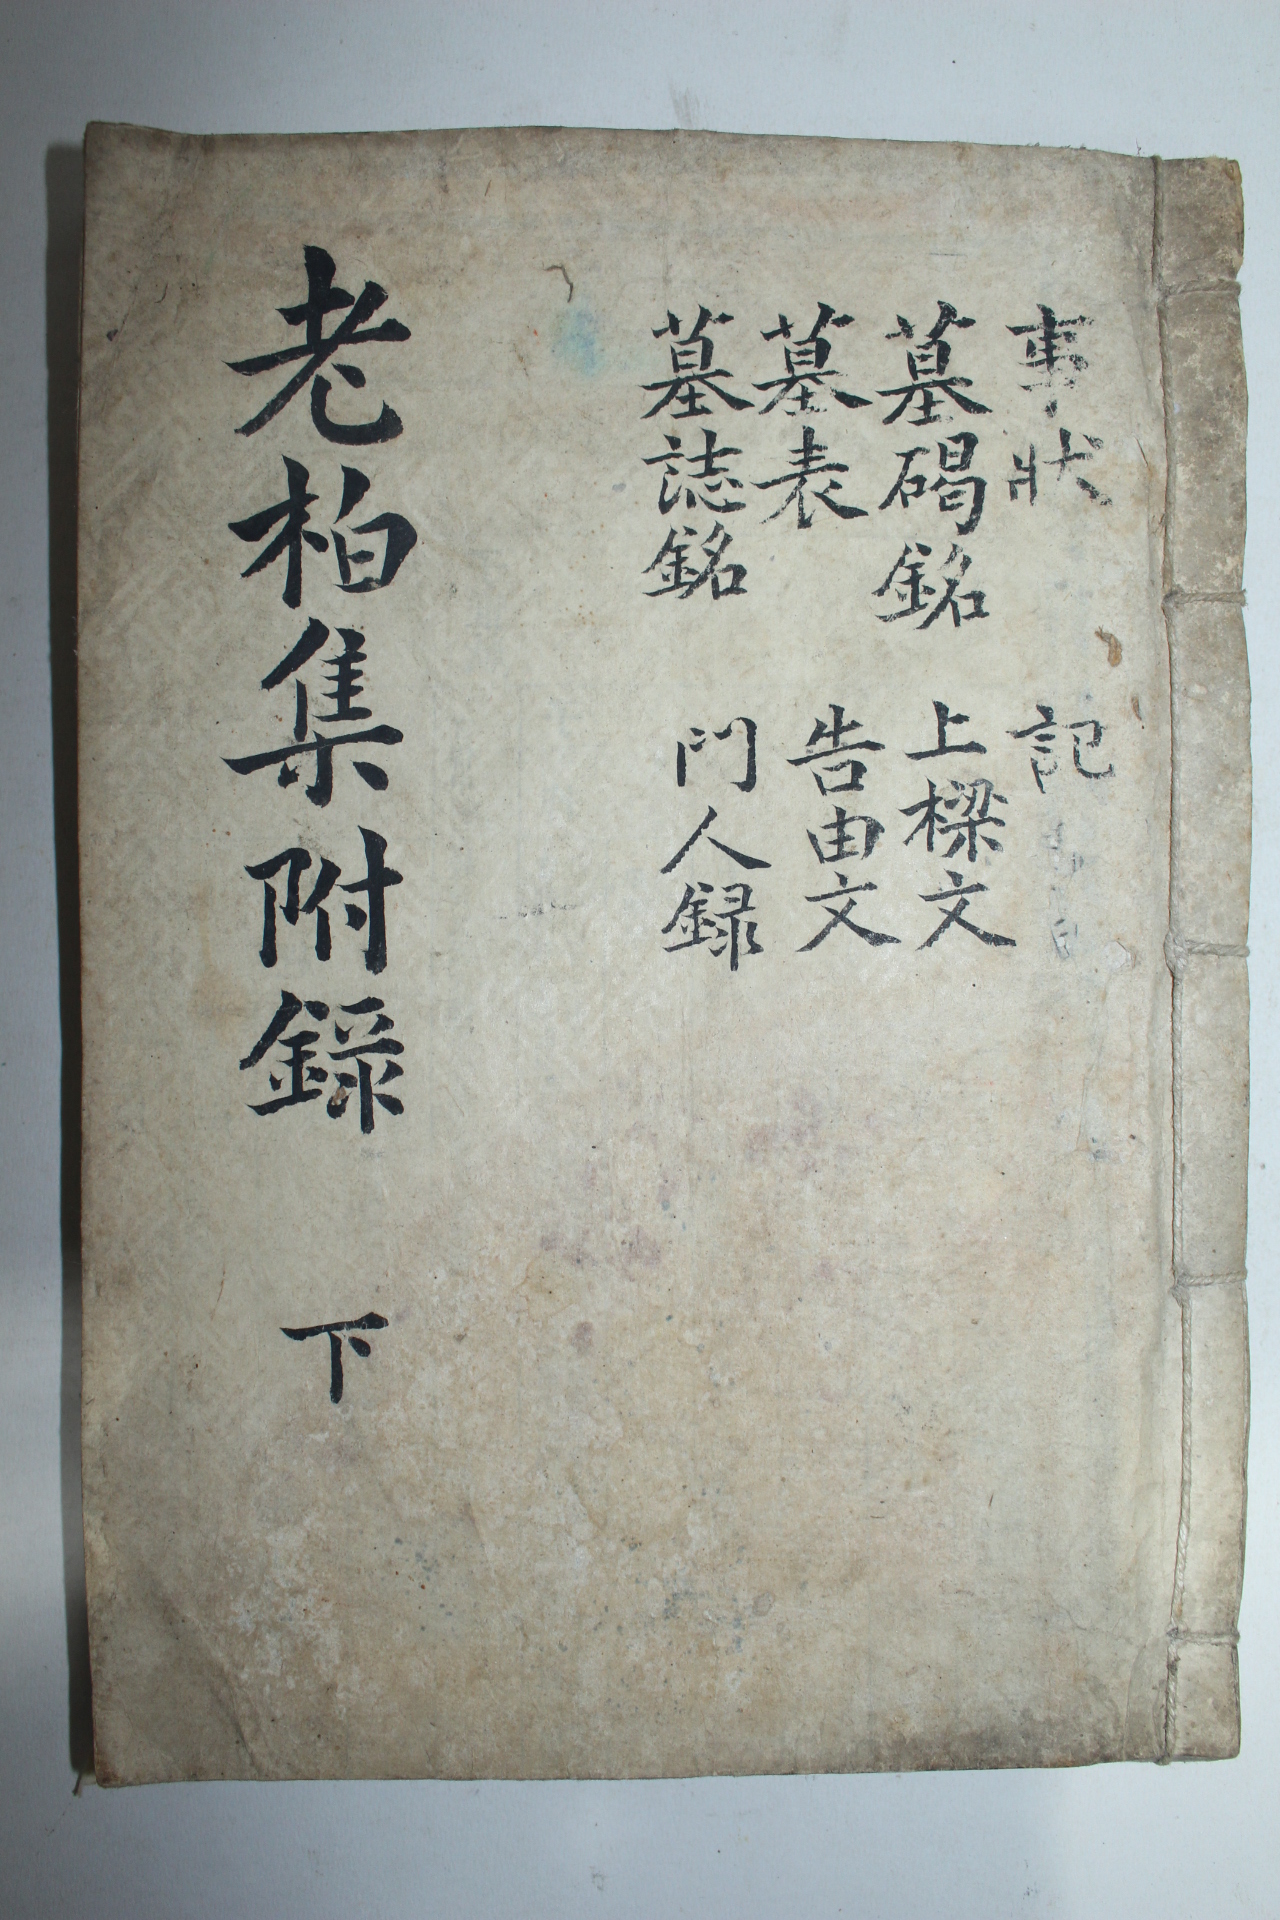 事狀
墓碣銘
墓表
墓誌銘
記
上樑文
告由文
門人録
老柏集附錄 下